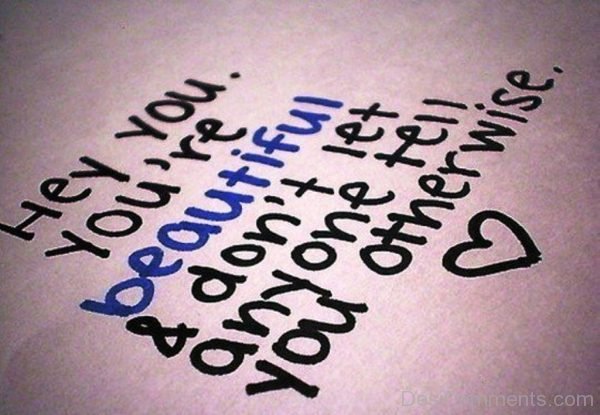 Hey you.
you're
beautiful
& don't let
anyone tell
you otherwise.
DesiComments.com